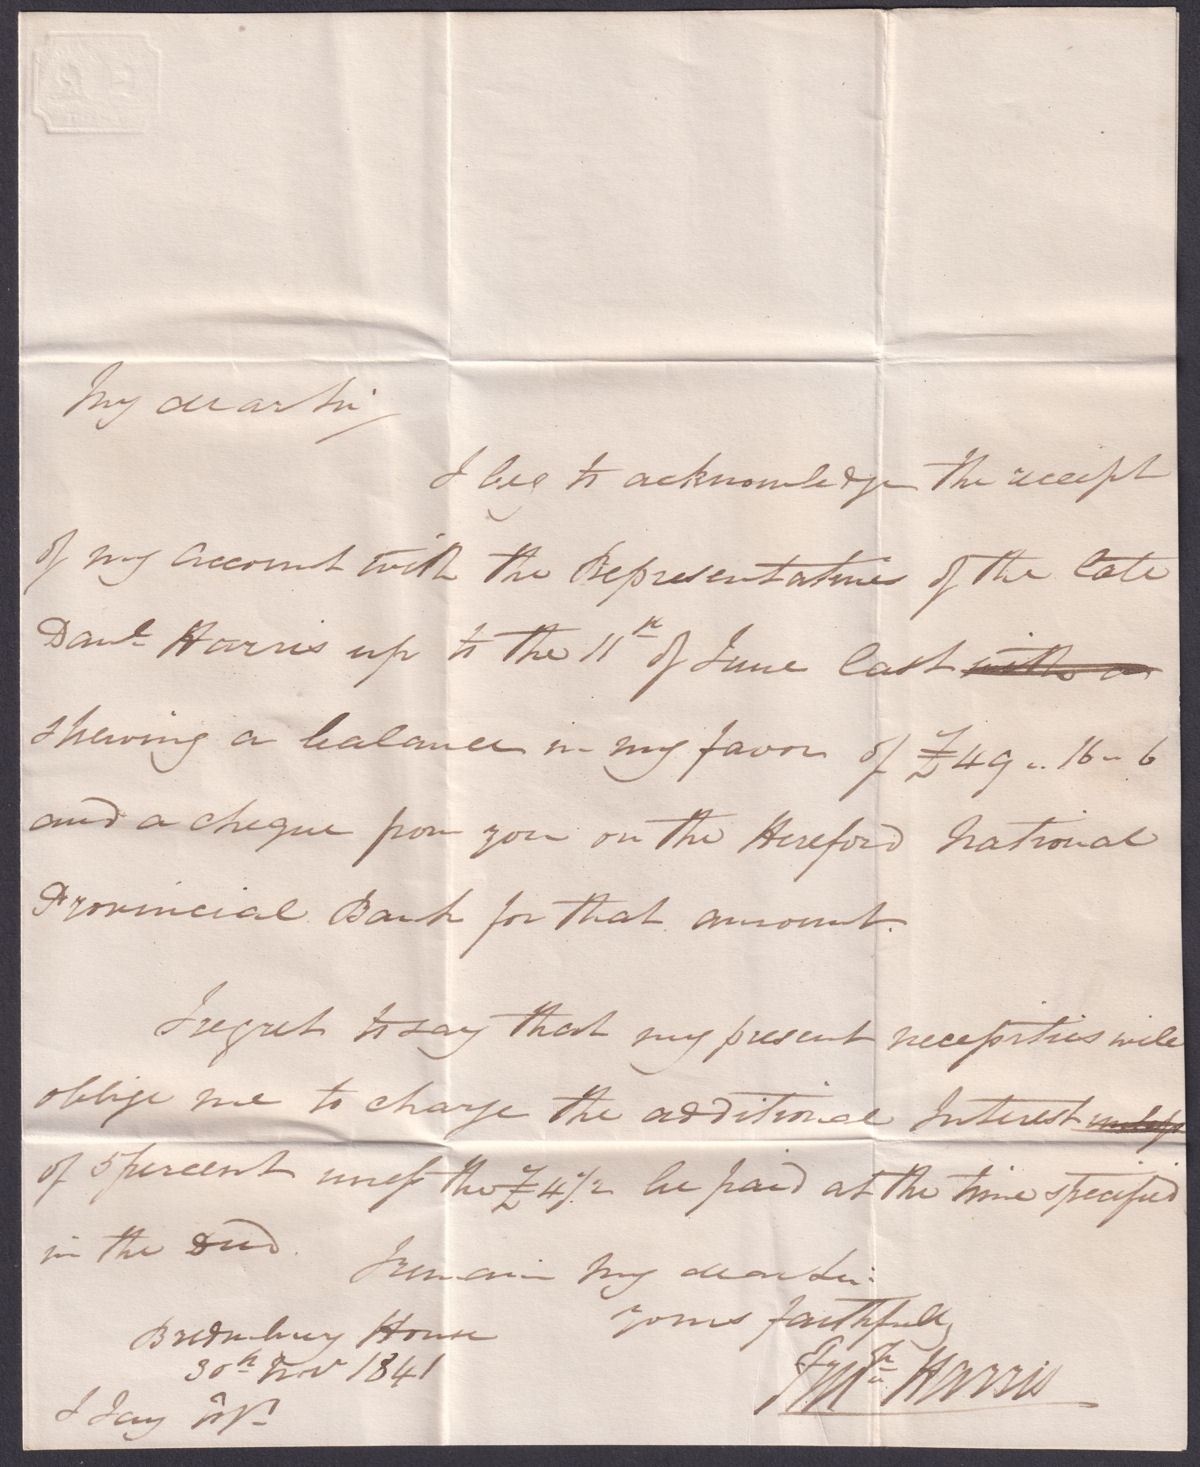 My dear Sir
I beg to acknowledge the receipt
of my account with the Representatives of the late
Danl. Harris up to the 11th of June last with a
shewing a balance in my favor of £49 .. 16 .. 6
and a cheque from you on the Hereford National
Provincial Bank for that amount.
I regret to say that my present necessities will
oblige me to charge the additional Interest unless
of 5 percent unless the £4 1/2 be paid at the time specified
in the Deed.
I remain My dear Sir
yours faithfully
Harris
Bredenbury House
30th Nov 1841
J Jay Esqr